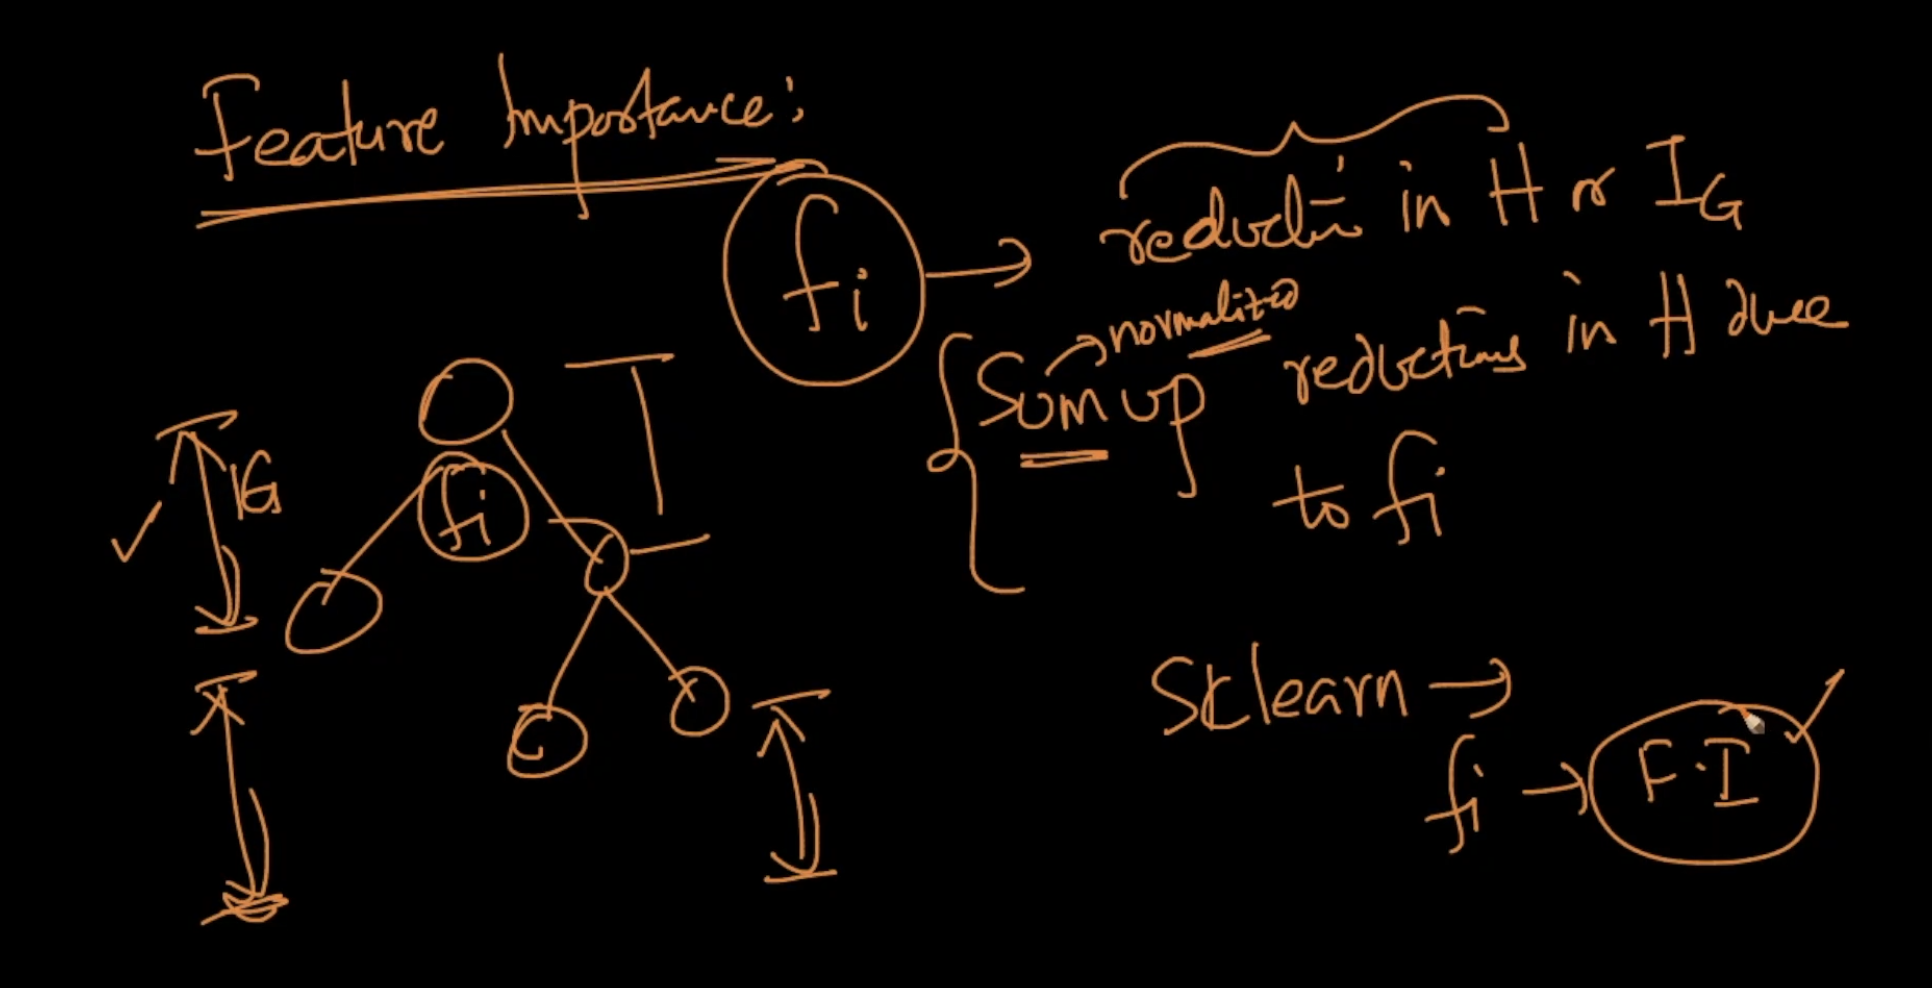 Feature Importance:
fi → reduction in H or I_G
Sum up → normalized reductions in H due
to fi
IG
fi
Sklearn →
fi → F.I